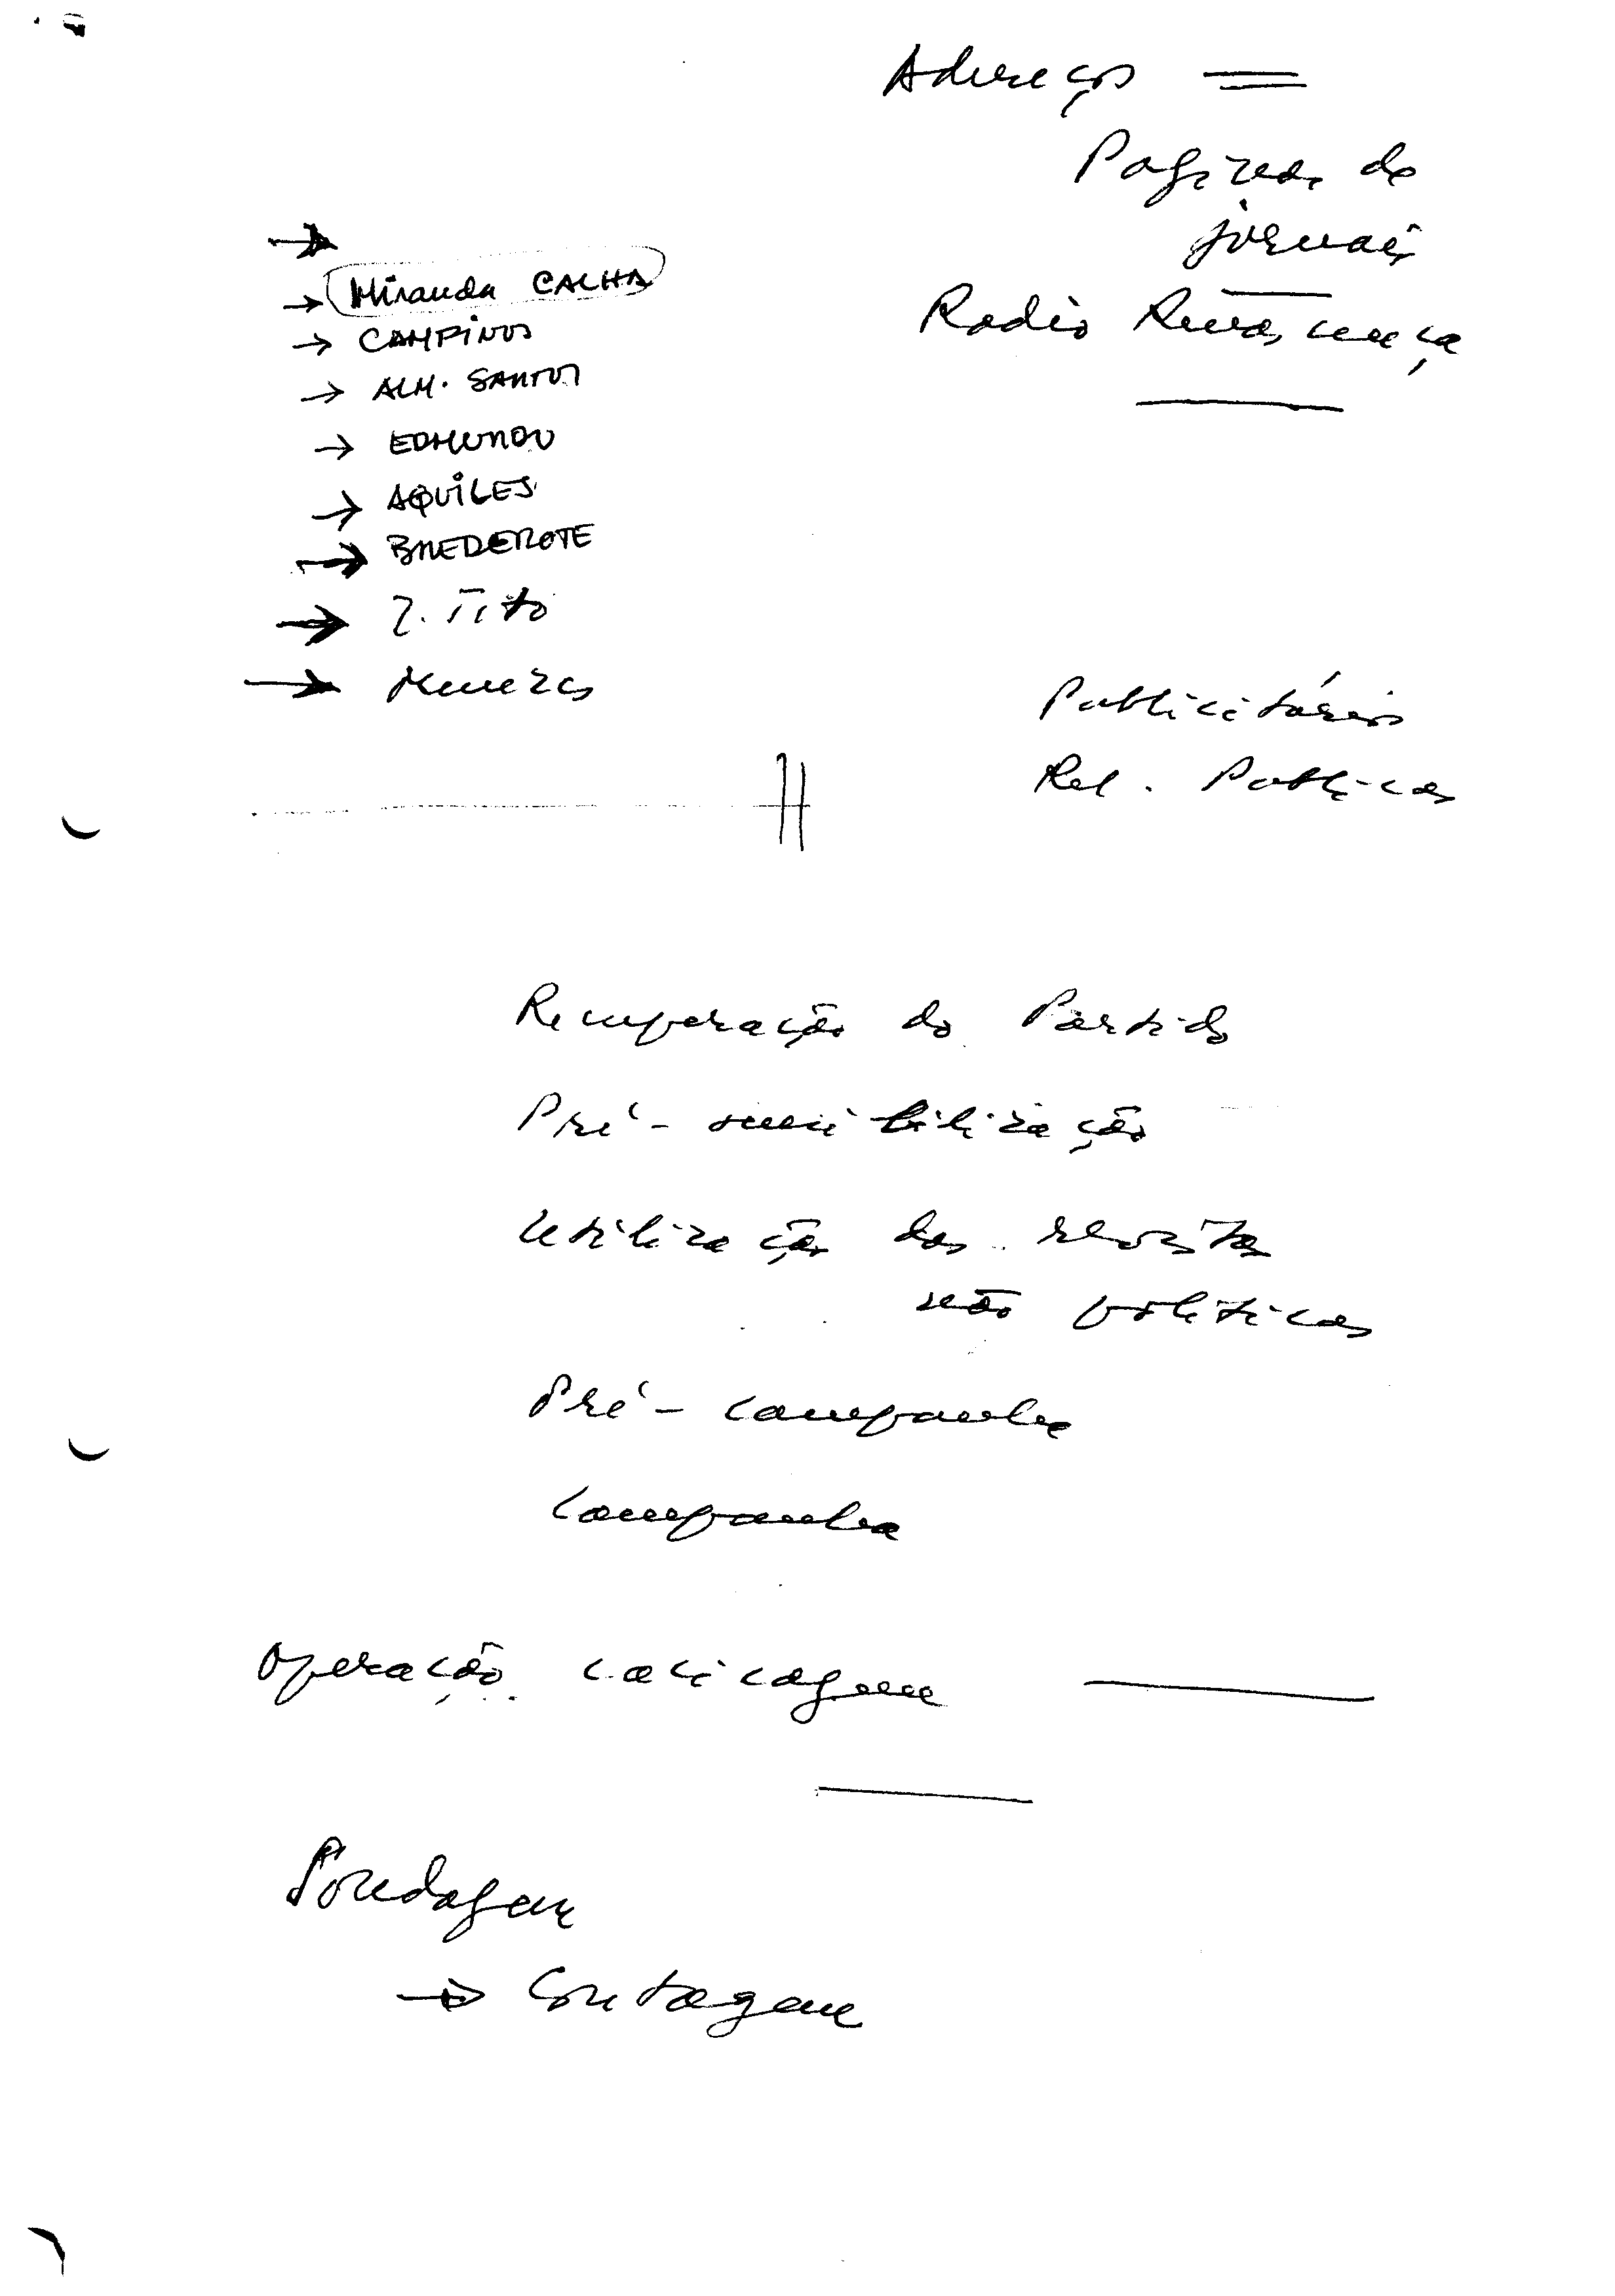 Adereços =
Paginas de
jornais
Radio Renascença
→
→ Miranda CALHA
→ CAMPINOS
→ ALM. SANTOS
→ EDMUNDO
→ AQUILES
→ BREDERODE
→ Z. Tito
→ Menezes
Publicitários
Rel. Publicas
Recuperação do Partido
Pré-sensibilização
Utilização das revistas
não politicas
Pré-campanha
Campanha
Operação
Sondagem
→ Contagem